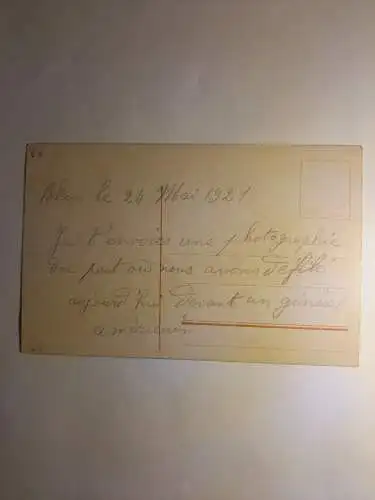 le 24 Mai 1921
Je t'envoies une photographie
du pont où nous avons défilé
aujourd'hui devant un général
américain